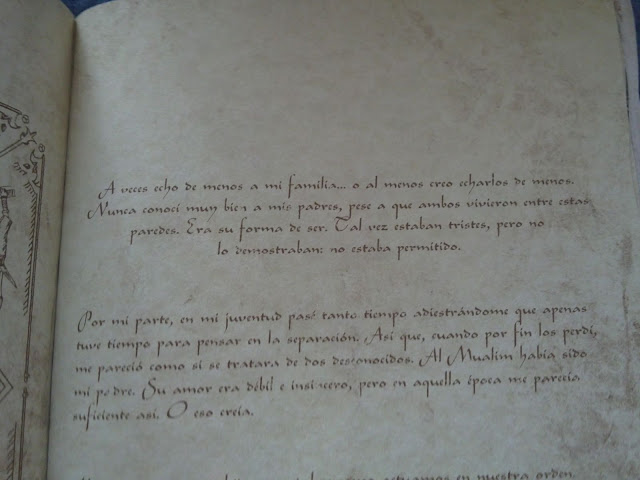 A veces echo de menos a mi familia... o al menos creo echarlos de menos.
Nunca conocí muy bien a mis padres, pese a que ambos vivieron entre estas
paredes. Era su forma de ser. Tal vez estaban tristes, pero no
lo demostraban: no estaba permitido.
Por mi parte, en mi juventud pasé tanto tiempo adiestrándome que apenas
tuve tiempo para pensar en la separación. Así que, cuando por fin los perdí,
me pareció como si se tratara de dos desconocidos. Al Mualim había sido
mi padre. Su amor era débil e insincero, pero en aquella época me parecía
suficiente así. O eso creía.
actuamos en nuestra orden